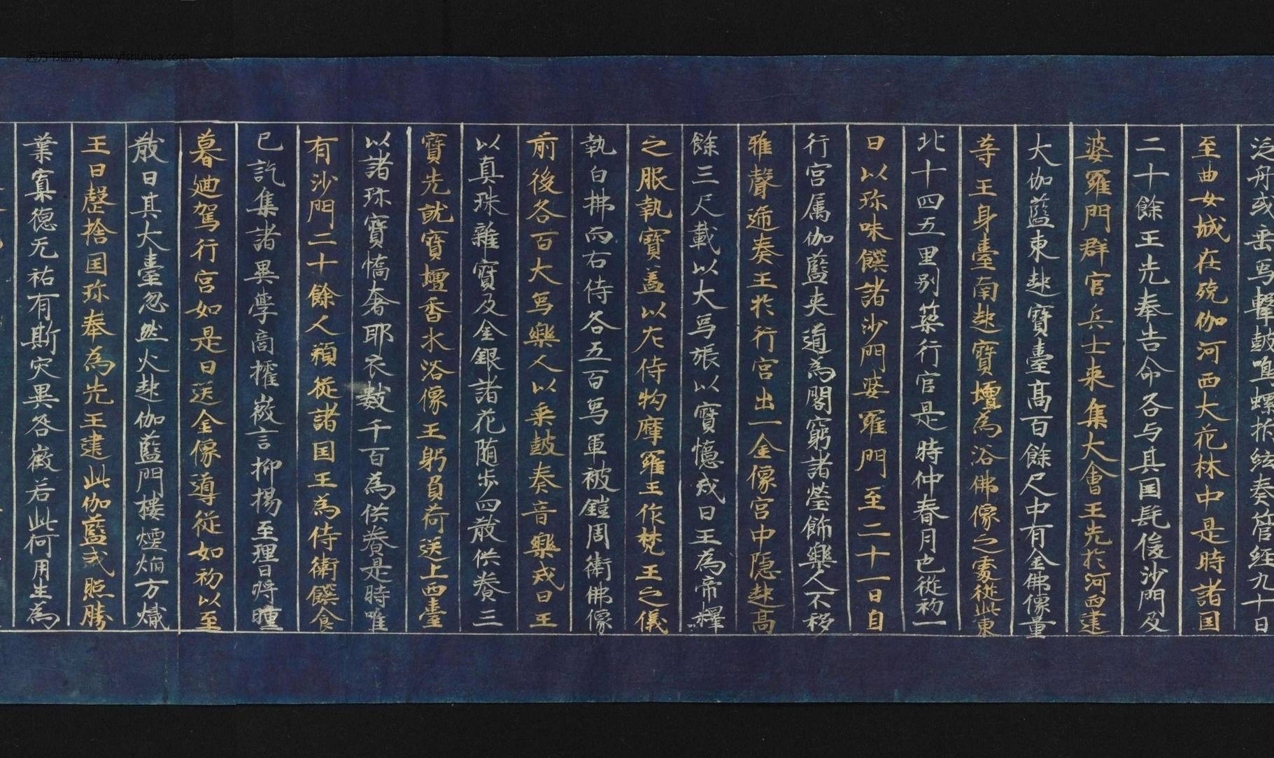 泛舟或垂馬擊鼓鳴螺拊絃奏管經九十日
至曲女城在殑伽河西大花林中是時諸国
二十餘王先奉告命各与其国髦俊沙門及
婆羅門群官兵士来集大會王先於河西建
大伽藍東起寶臺髙百餘尺中有金佛像量
等王身臺南起寶壇為浴佛像之處從此東
北十四五里別築行宮是時仲春月也從初一
日以珎味饌諸沙門婆羅門至二十一日自
行宮属伽藍夾道為閣窮諸瑩飾樂人不移
雅聲逓奏王於行宮出一金像宮中隠起髙
餘三尺載以大馬張以寶憶戒日王為帝釋
之服執寶盖以左侍物摩羅王作梵王之儀
執白拂而右侍各五百馬軍被鎧周衛佛像
前後各百大馬樂人以乘鼓奏音樂戒日王
以真珠雜寶及金銀諸花随歩四散供養三
寶先就寶壇香水浴像王躬負荷送上西臺
以諸珎寶憍奢耶衣數千百為供養是時唯
有沙門二十餘人預從諸国王為侍衛饌食
已訖集諸異學商搉㣲言抑揚至理日將曛
暮廻駕行宮如是日送金像導從如初以至
散日其大臺忽然火起伽藍門樓煙焔方熾
王曰罄捨国珎奉為先王建此伽藍式照勝
業寡徳无祐有斯灾異咎徴若此何用生為